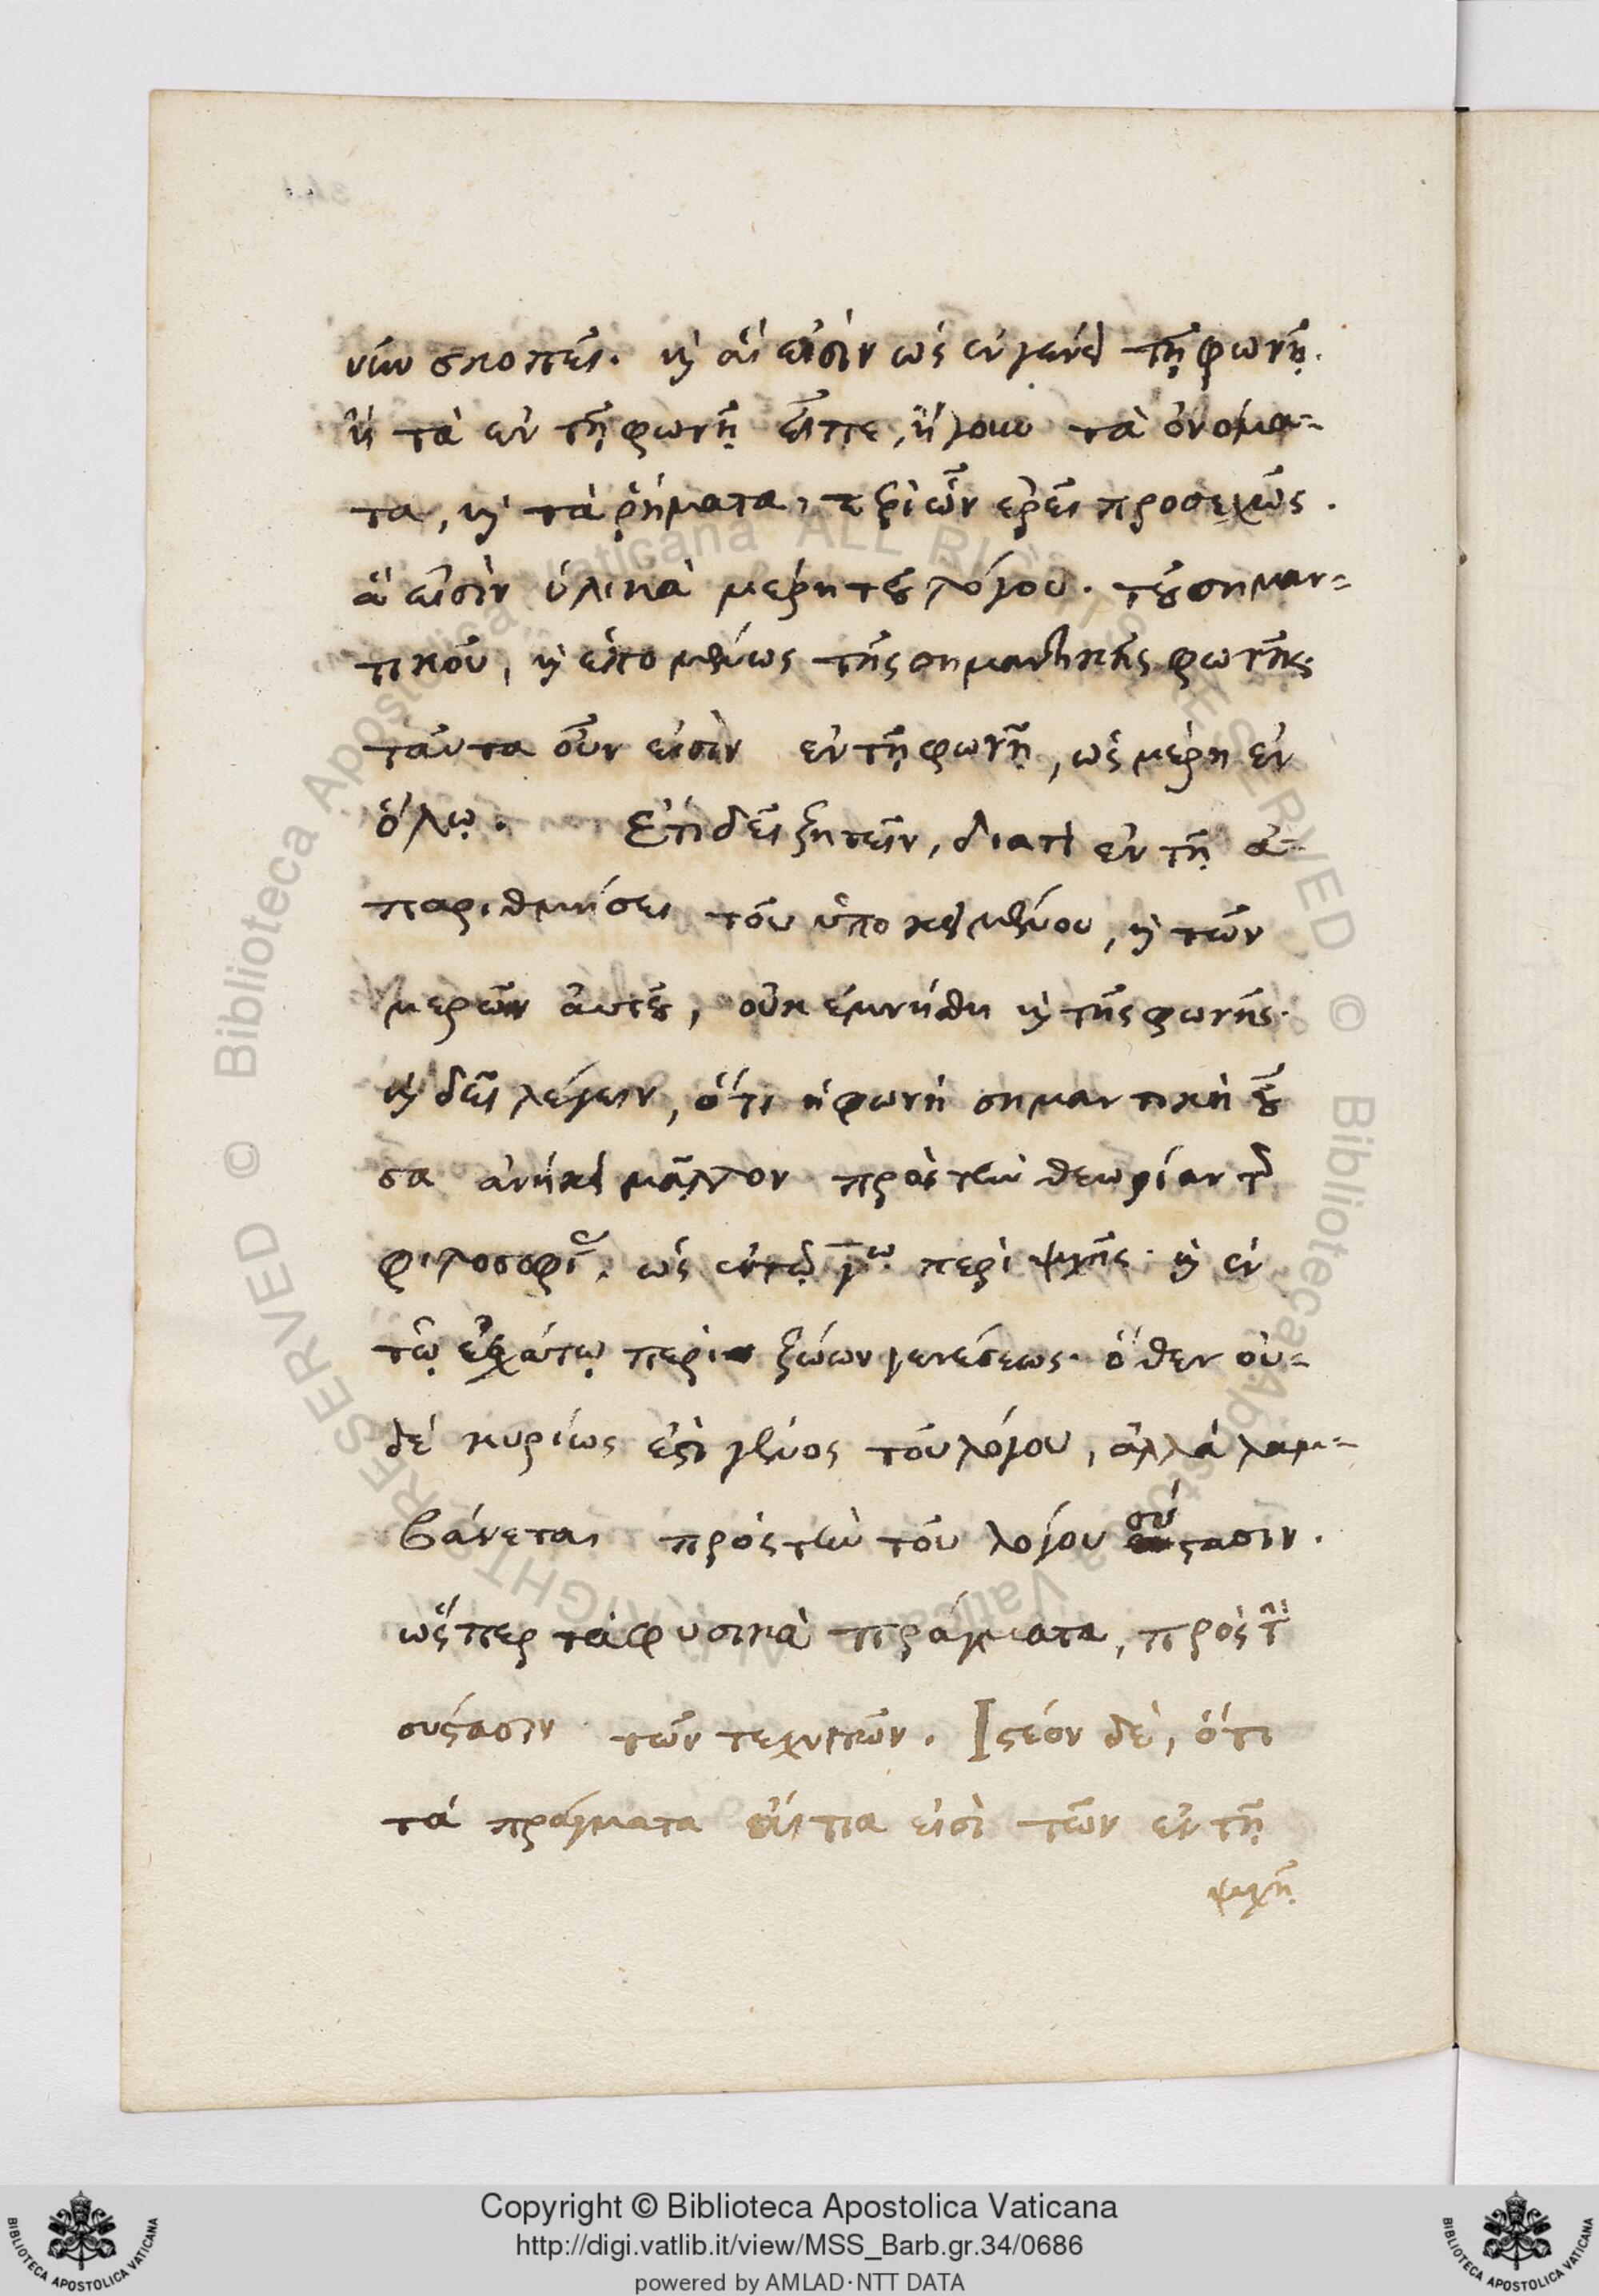 νῦν σκοπεῖ. καὶ αἵ εἰσὶν ὡς ἐν γένει τῇ φωνῇ.
ἢ τὰ ἐν τῇ φωνῇ εἶπε, ἤγουν τὰ ὀνόμα-
τα, καὶ τὰ ῥήματα, περὶ ὧν ἐρεῖ προσεχῶς.
ἅ εἰσὶν ὑλικὰ μέρη τοῦ λόγου. τοῦ σημαν-
τικοῦ, καὶ ἑπομένως τῆς σημαντικῆς φωνῆς.
ταῦτα οὖν εἰσὶν ἐν τῇ φωνῇ, ὡς μέρη ἐν
ὅλῳ. Ἔτι δεῖ ζητεῖν, διατί ἐν τῇ ἀ-
παριθμήσει τοῦ ὑποκειμένου, καὶ τῶν
μερῶν αὐτοῦ, οὐκ ἐμνήσθη καὶ τῆς φωνῆς.
καὶ δεῖ λέγειν, ὅτι ἡ φωνή σημαντικὴ οὖ
σα ἀνήκει μᾶλλον πρὸς τὴν θεωρίαν τῆς
φιλοσοφίας. ὡς ἐν τῷ γῳ περὶ ψυχῆς. καὶ ἐν
τῷ ἐσχάτῳ περὶ ζώων γενέσεως. ὅθεν οὐ-
δέ κυρίως ἐστὶ γένος τοῦ λόγου, ἀλλά λαμ-
βάνεται πρὸς τὴν τοῦ λόγου σύστασιν.
ὥσπερ τὰ φυσικὰ πράγματα, πρὸς τὴν
σύστασιν τῶν τεχνικῶν. Ἰστέον δὲ, ὅτι
τὰ πράγματα αἴτια εἰσὶ τῶν ἐν τῇ
ψυχῇ
Copyright © Biblioteca Apostolica Vaticana
http://digi.vatlib.it/view/MSS_Barb.gr.34/0686
powered by AMLAD·NTT DATA